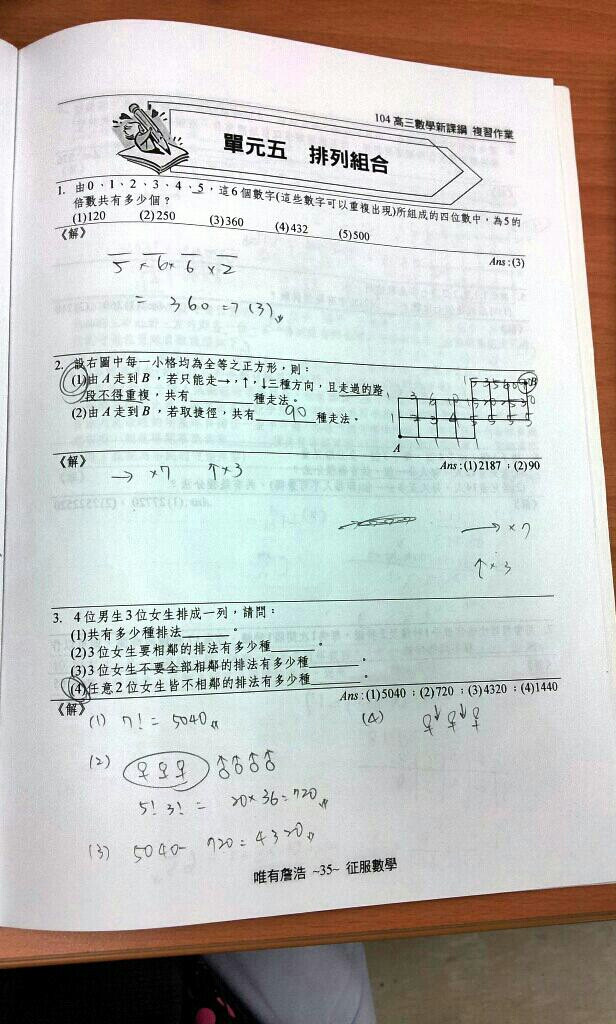 104 高三數學新課綱 複習作業
單元五 排列組合
1. 由0、1、2、3、4、5，這6個數字(這些數字可以重複出現)所組成的四位數中，為5的
倍數共有多少個？
(1)120 (2)250 (3)360 (4)432 (5)500
《解》 Ans：(3)
5 × 6 × 6 × 2
= 360 => (3)
2. 設右圖中每一小格均為全等之正方形，則：
(1)由A走到B，若只能走→，↑，↓三種方向，且走過的路
段不得重複，共有 種走法。
(2)由A走到B，若取捷徑，共有 90 種走法。
A
B
《解》 Ans：(1)2187；(2)90
→ ×7 ↑×3
→ ×7
↑×3
3. 4位男生3位女生排成一列，請問：
(1)共有多少種排法 。
(2)3位女生要相鄰的排法有多少種 。
(3)3位女生不要全部相鄰的排法有多少種 。
(4)任意2位女生皆不相鄰的排法有多少種 。
《解》 Ans：(1)5040；(2)720；(3)4320；(4)1440
(1) 7! = 5040
(4) ♀↓♀↓♀
(2) ♀♀♀ ♂♂♂♂
5! 3! = 20×36=720
(3) 5040- 720=4320
唯有詹浩 ~35~ 征服數學